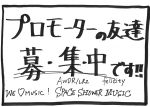 プロモーターの友達
募・集中です!!
ANDRILLZ felicity
WE ♡ MUSIC! SPACE SHOWER MUSIC